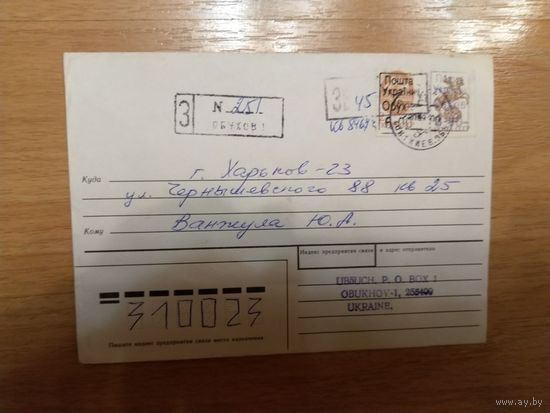 З
N 251
ОБУХОВ 1
45
Пошта
України
Обух
г. Харьков-23
Куда
ул. Чернышевского 88 кв 25
Ванжула Ю.А.
Кому
Индекс предприятия связи и адрес отправителя
UBSUCH, P. O. BOX 1
OBUKHOV-1, 255400
UKRAINE.
310023
Пишите индекс предприятия связи места назначения
www.ay.by